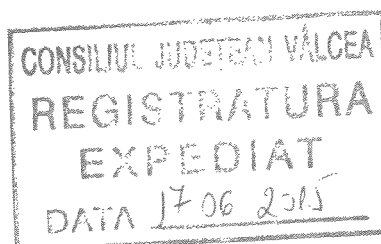 CONSILIUL JUDEȚEAN VÂLCEA
REGISTRATURA
EXPEDIAT
DATA 17 06 2015